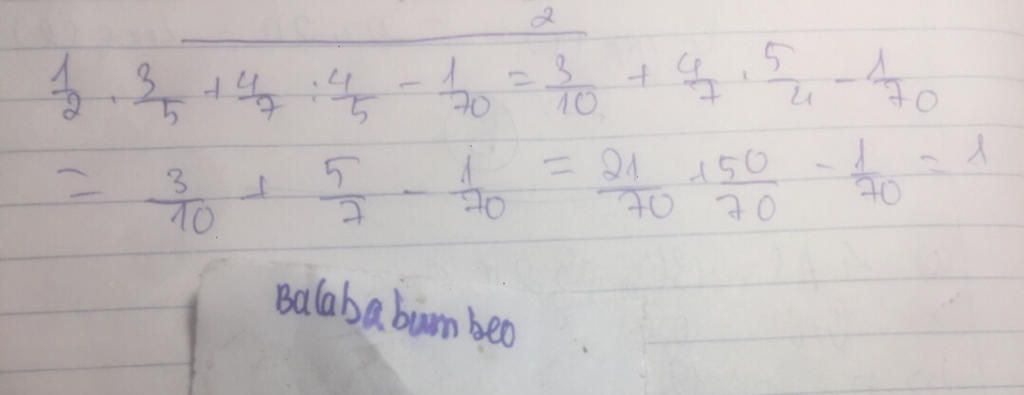 2
1/2 . 3/5 + 4/7 : 4/5 - 1/70 = 3/10 + 4/7 . 5/4 - 1/70
= 3/10 + 5/7 - 1/70 = 21/70 + 50/70 - 1/70 = 1
Balababumbeo